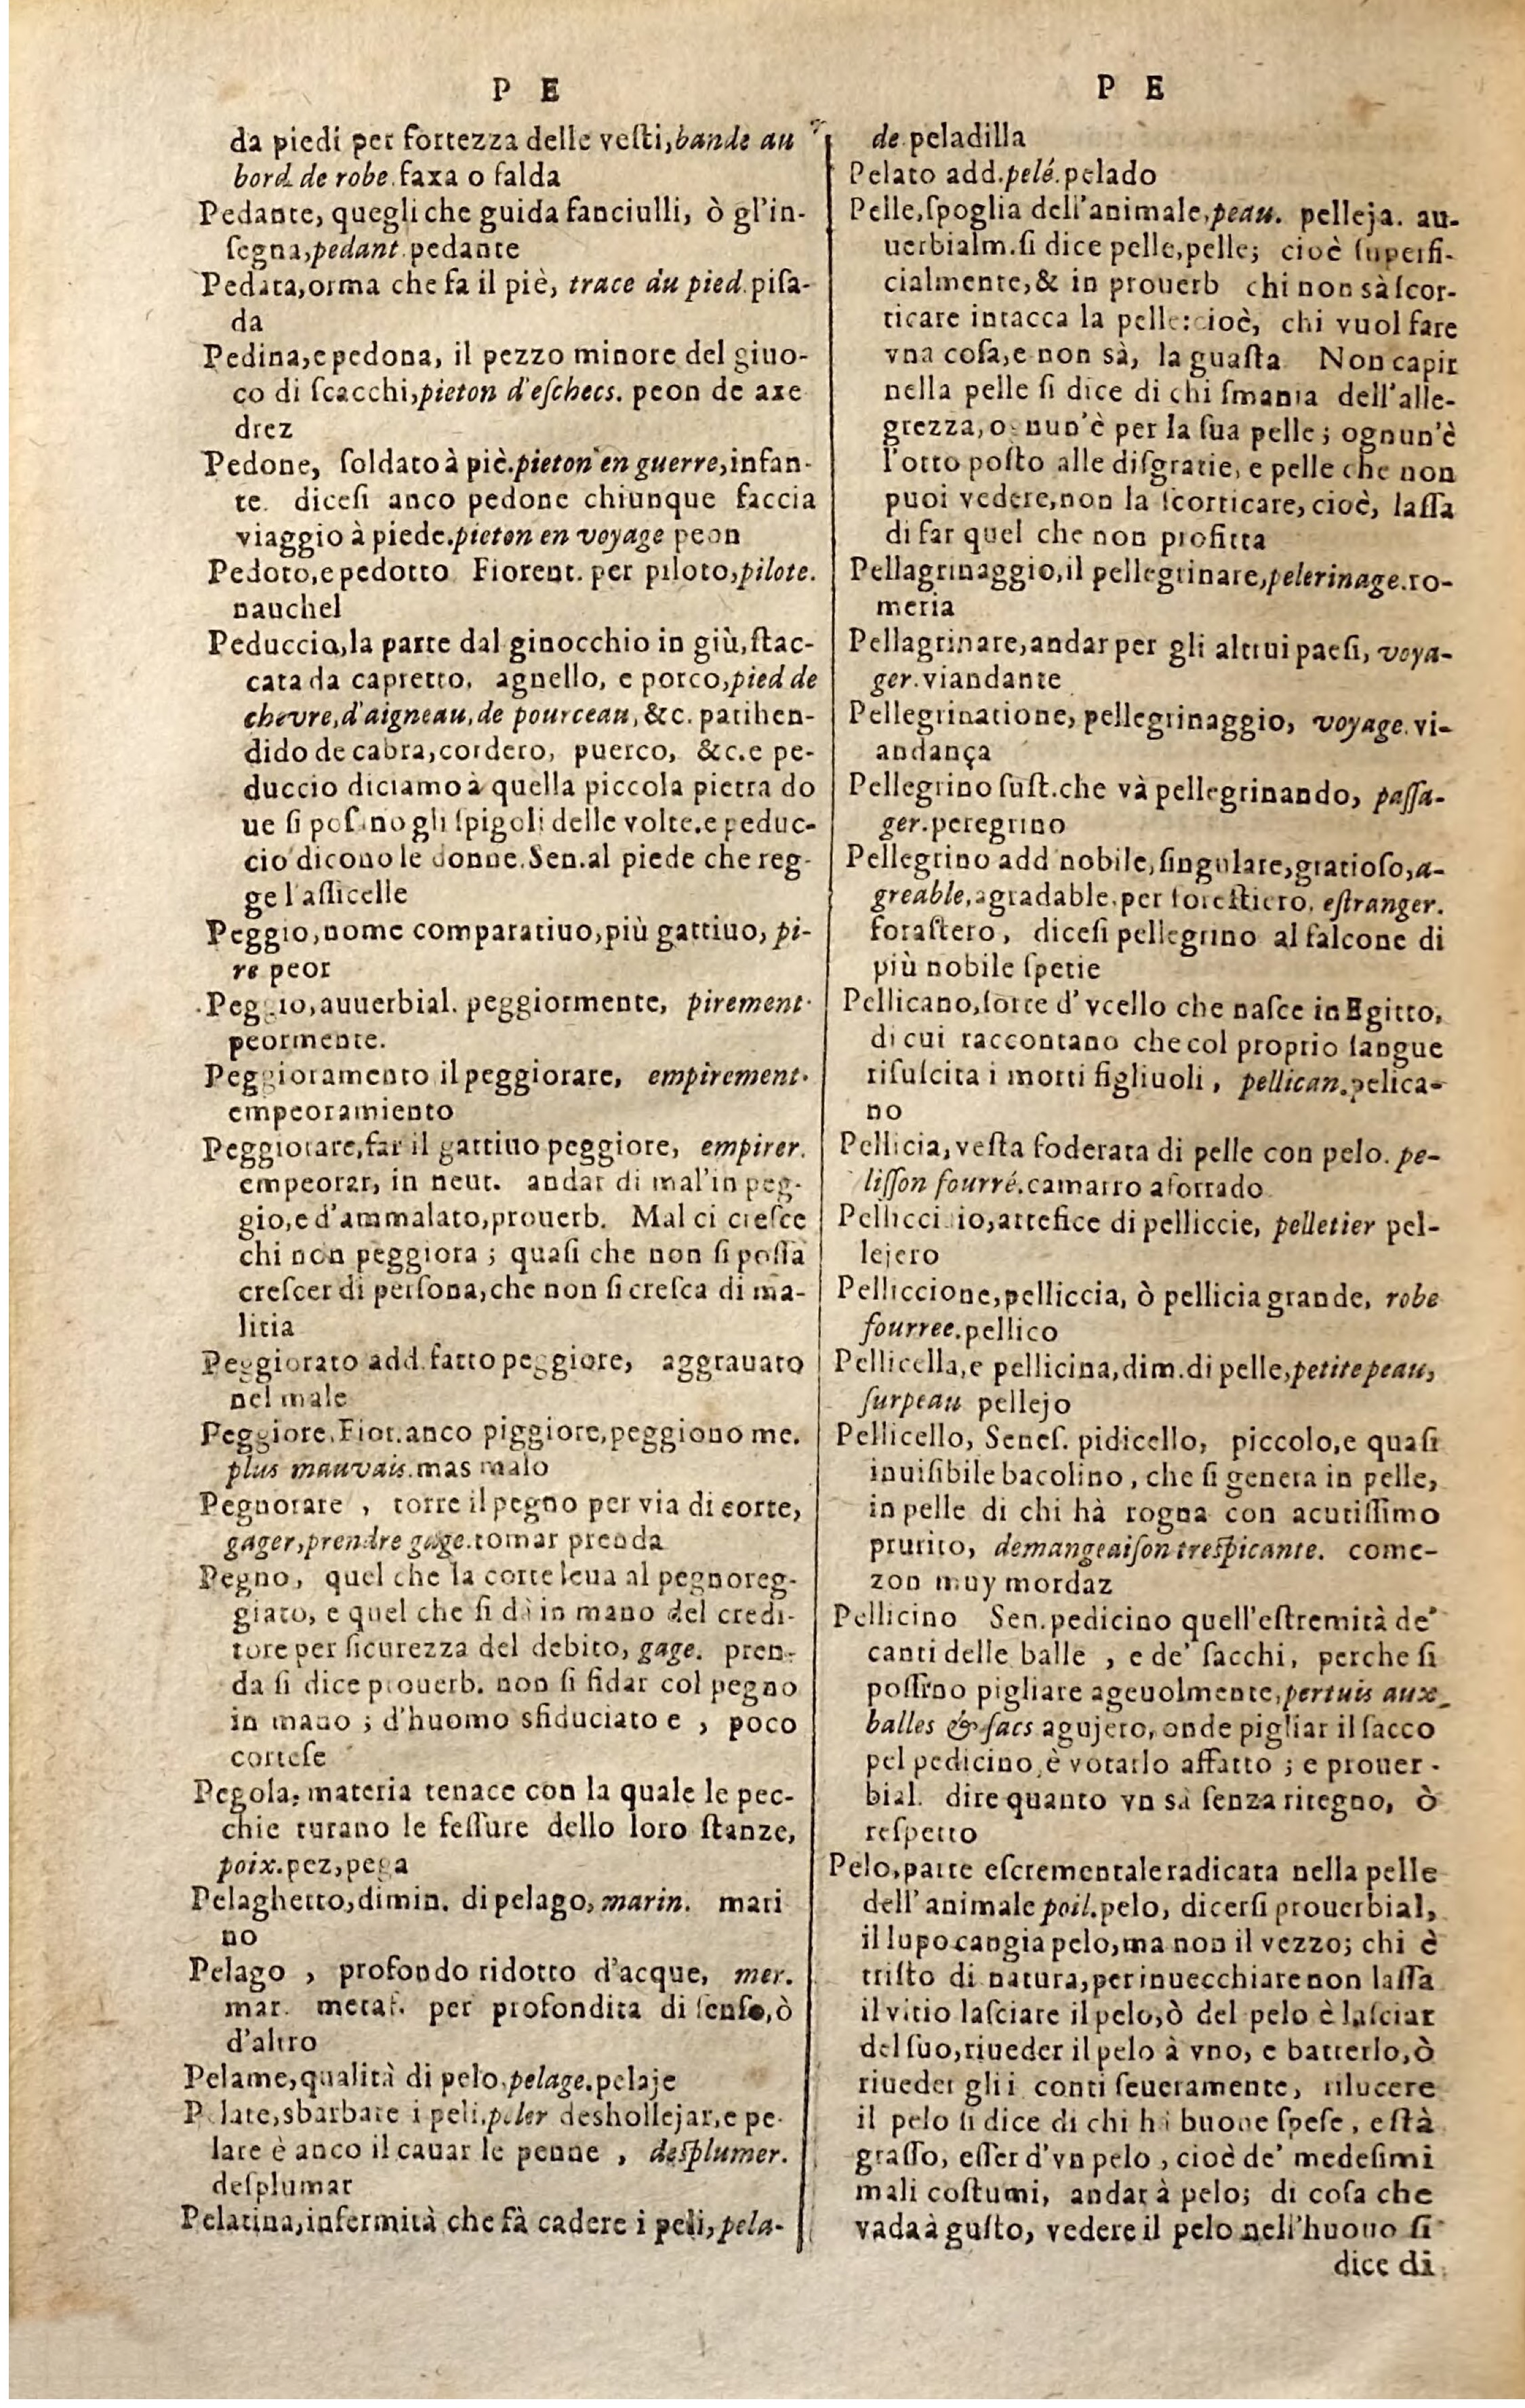 P E
da piedi per fortezza delle veſti,bande au
bord de robe.faxa o falda
Pedante, quegli che guida fanciulli, ò gl'in-
ſegna,pedant.pedante
Pedata,orma che fa il piè, trace du pied.piſa-
da
Pedina,e pedona, il pezzo minore del giuo-
co di ſcacchi,pieton d'eſchecs. peon de axe
drez
Pedone, ſoldato à piè.pieton en guerre,infan-
te. diceſi anco pedone chiunque faccia
viaggio à piede.pieton en voyage peon
Pedoto,e pedotto Fiorent. per piloto,pilote.
nauchel
Peduccio,la parte dal ginocchio in giù,ſtac-
cata da capretto, agnello, e porco,pied de
chevre,d'aigneau,de pourceau,&c. patihen-
dido de cabra,cordero, puerco, &c.e pe-
duccio diciamo à quella piccola pietra do
ue ſi poſano gli ſpigoli delle volte.e peduc-
cio dicono le donne.Sen.al piede che reg-
ge l'aſticelle
Peggio,nome comparatiuo,più gattiuo, pi-
re peor
Peggio,auuerbial. peggiormente, pirement.
peormente.
Peggioramento il peggiorare, empirement.
empeoramiento
Peggiorare,far il gattiuo peggiore, empirer.
empeorar, in neut. andar di mal'in peg-
gio,e d'ammalato,prouerb. Mal ci creſce
chi non peggiora ; quaſi che non ſi poſſa
creſcer di perſona,che non ſi creſca di ma-
litia
Peggiorato add.fatto peggiore, aggrauato
nel male
Peggiore.Fior.anco piggiore,peggiono me.
plus mauvais.mas malo
Pegnorare , torre il pegno per via di corte,
gager,prendre gage.tomar prenda
Pegno, quel che la corte leua al pegnoreg-
giato, e quel che ſi dà in mano del credi-
tore per ſicurezza del debito, gage. pren-
da ſi dice prouerb. non ſi fidar col pegno
in mano ; d'huomo sfiduciato e , poco
corteſe
Pegola, materia tenace con la quale le pec-
chie turano le feſſure dello loro ſtanze,
poix.pez,pega
Pelaghetto,dimin. di pelago,marin. mari
no
Pelago , profondo ridotto d'acque, mer.
mar. metaf. per profondita di ſenſo,ò
d'altro
Pelame,qualità di pelo.pelage.pelaje
Pelare,sbarbare i peli.peler deshollejar,e pe-
lare è anco il cauar le penne , deſplumer.
deſplumar
Pelatina,infermità che fà cadere i peli,pela-
P E
de peladilla
Pelato add.pelé.pelado
Pelle,ſpoglia dell'animale,peau. pelleja. au-
uerbialm.ſi dice pelle,pelle; cioè ſuperfi-
cialmente,& in prouerb chi non sà ſcor-
ticare intacca la pelle:cioè, chi vuol fare
vna coſa,e non sà, la guaſta Non capir
nella pelle ſi dice di chi ſmania dell'alle-
grezza,ognun'è per la ſua pelle ; ognun'è
l'otto poſto alle diſgratie, e pelle che non
puoi vedere,non la ſcorticare, cioè, laſſa
di far quel che non profitta
Pellagrinaggio,il pellegrinare,pelerinage.ro-
meria
Pellagrinare,andar per gli altrui paeſi, voya-
ger.viandante
Pellegrinatione, pellegrinaggio, voyage.vi-
andança
Pellegrino ſuſt.che và pellegrinando, paſſa-
ger.peregrino
Pellegrino add nobile,ſingulare,gratioſo,a-
greable,agradable.per foreſtiero. eſtranger.
foraſtero, diceſi pellegrino al falcone di
più nobile ſpetie
Pellicano,ſorte d' vcello che naſce in Egitto,
di cui raccontano che col proprio ſangue
riſuſcita i morti figliuoli , pellican.pelica-
no
Pellicia, veſta foderata di pelle con pelo. pe-
liſſon fourré.camarro aforrado
Pellicciaio,artefice di pelliccie, pelletier pel-
lejero
Pelliccione,pelliccia, ò pellicia grande, robe
fourree.pellico
Pellicella,e pellicina,dim.di pelle,petite peau,
ſurpeau pellejo
Pellicello, Seneſ. pidicello, piccolo,e quaſi
inuiſibile bacolino , che ſi genera in pelle,
in pelle di chi hà rogna con acutiſſimo
prurito, demangeaiſon treſpicante. come-
zon muy mordaz
Pellicino Sen.pedicino quell'eſtremità de'
canti delle balle , e de' ſacchi, perche ſi
poſſino pigliare ageuolmente,pertuis aux
balles & ſacs agujero, onde pigliar il ſacco
pel pedicino,è votarlo affatto ; e prouer-
bial. dire quanto vn sà ſenza ritegno, ò
reſpetto
Pelo,parte eſcrementale radicata nella pelle
dell' animale poil.pelo, dicerſi prouerbial,
il lupo cangia pelo,ma non il vezzo; chi è
triſto di natura,per inuecchiare non laſſa
il vitio laſciare il pelo,ò del pelo è laſciar
del ſuo,riueder il pelo à vno, e batterlo,ò
riueder gli i conti ſeueramente, rilucere
il pelo ſi dice di chi hà buone ſpeſe , e ſtà
graſſo, eſſer d'vn pelo , cioè de' medeſimi
mali coſtumi, andar à pelo; di coſa che
vada à guſto, vedere il pelo nell'huouo ſi
dice di